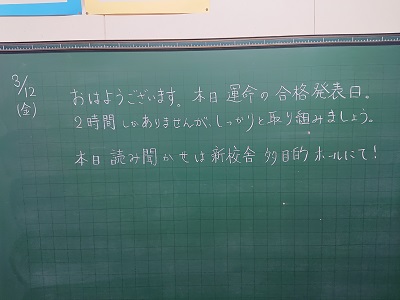 3/12
(金)
おはようございます。本日 運命の合格発表日。
2時間しかありませんが、しっかりと取り組みましょう。
本日 読み聞かせは 新校舎 多目的ホールにて!